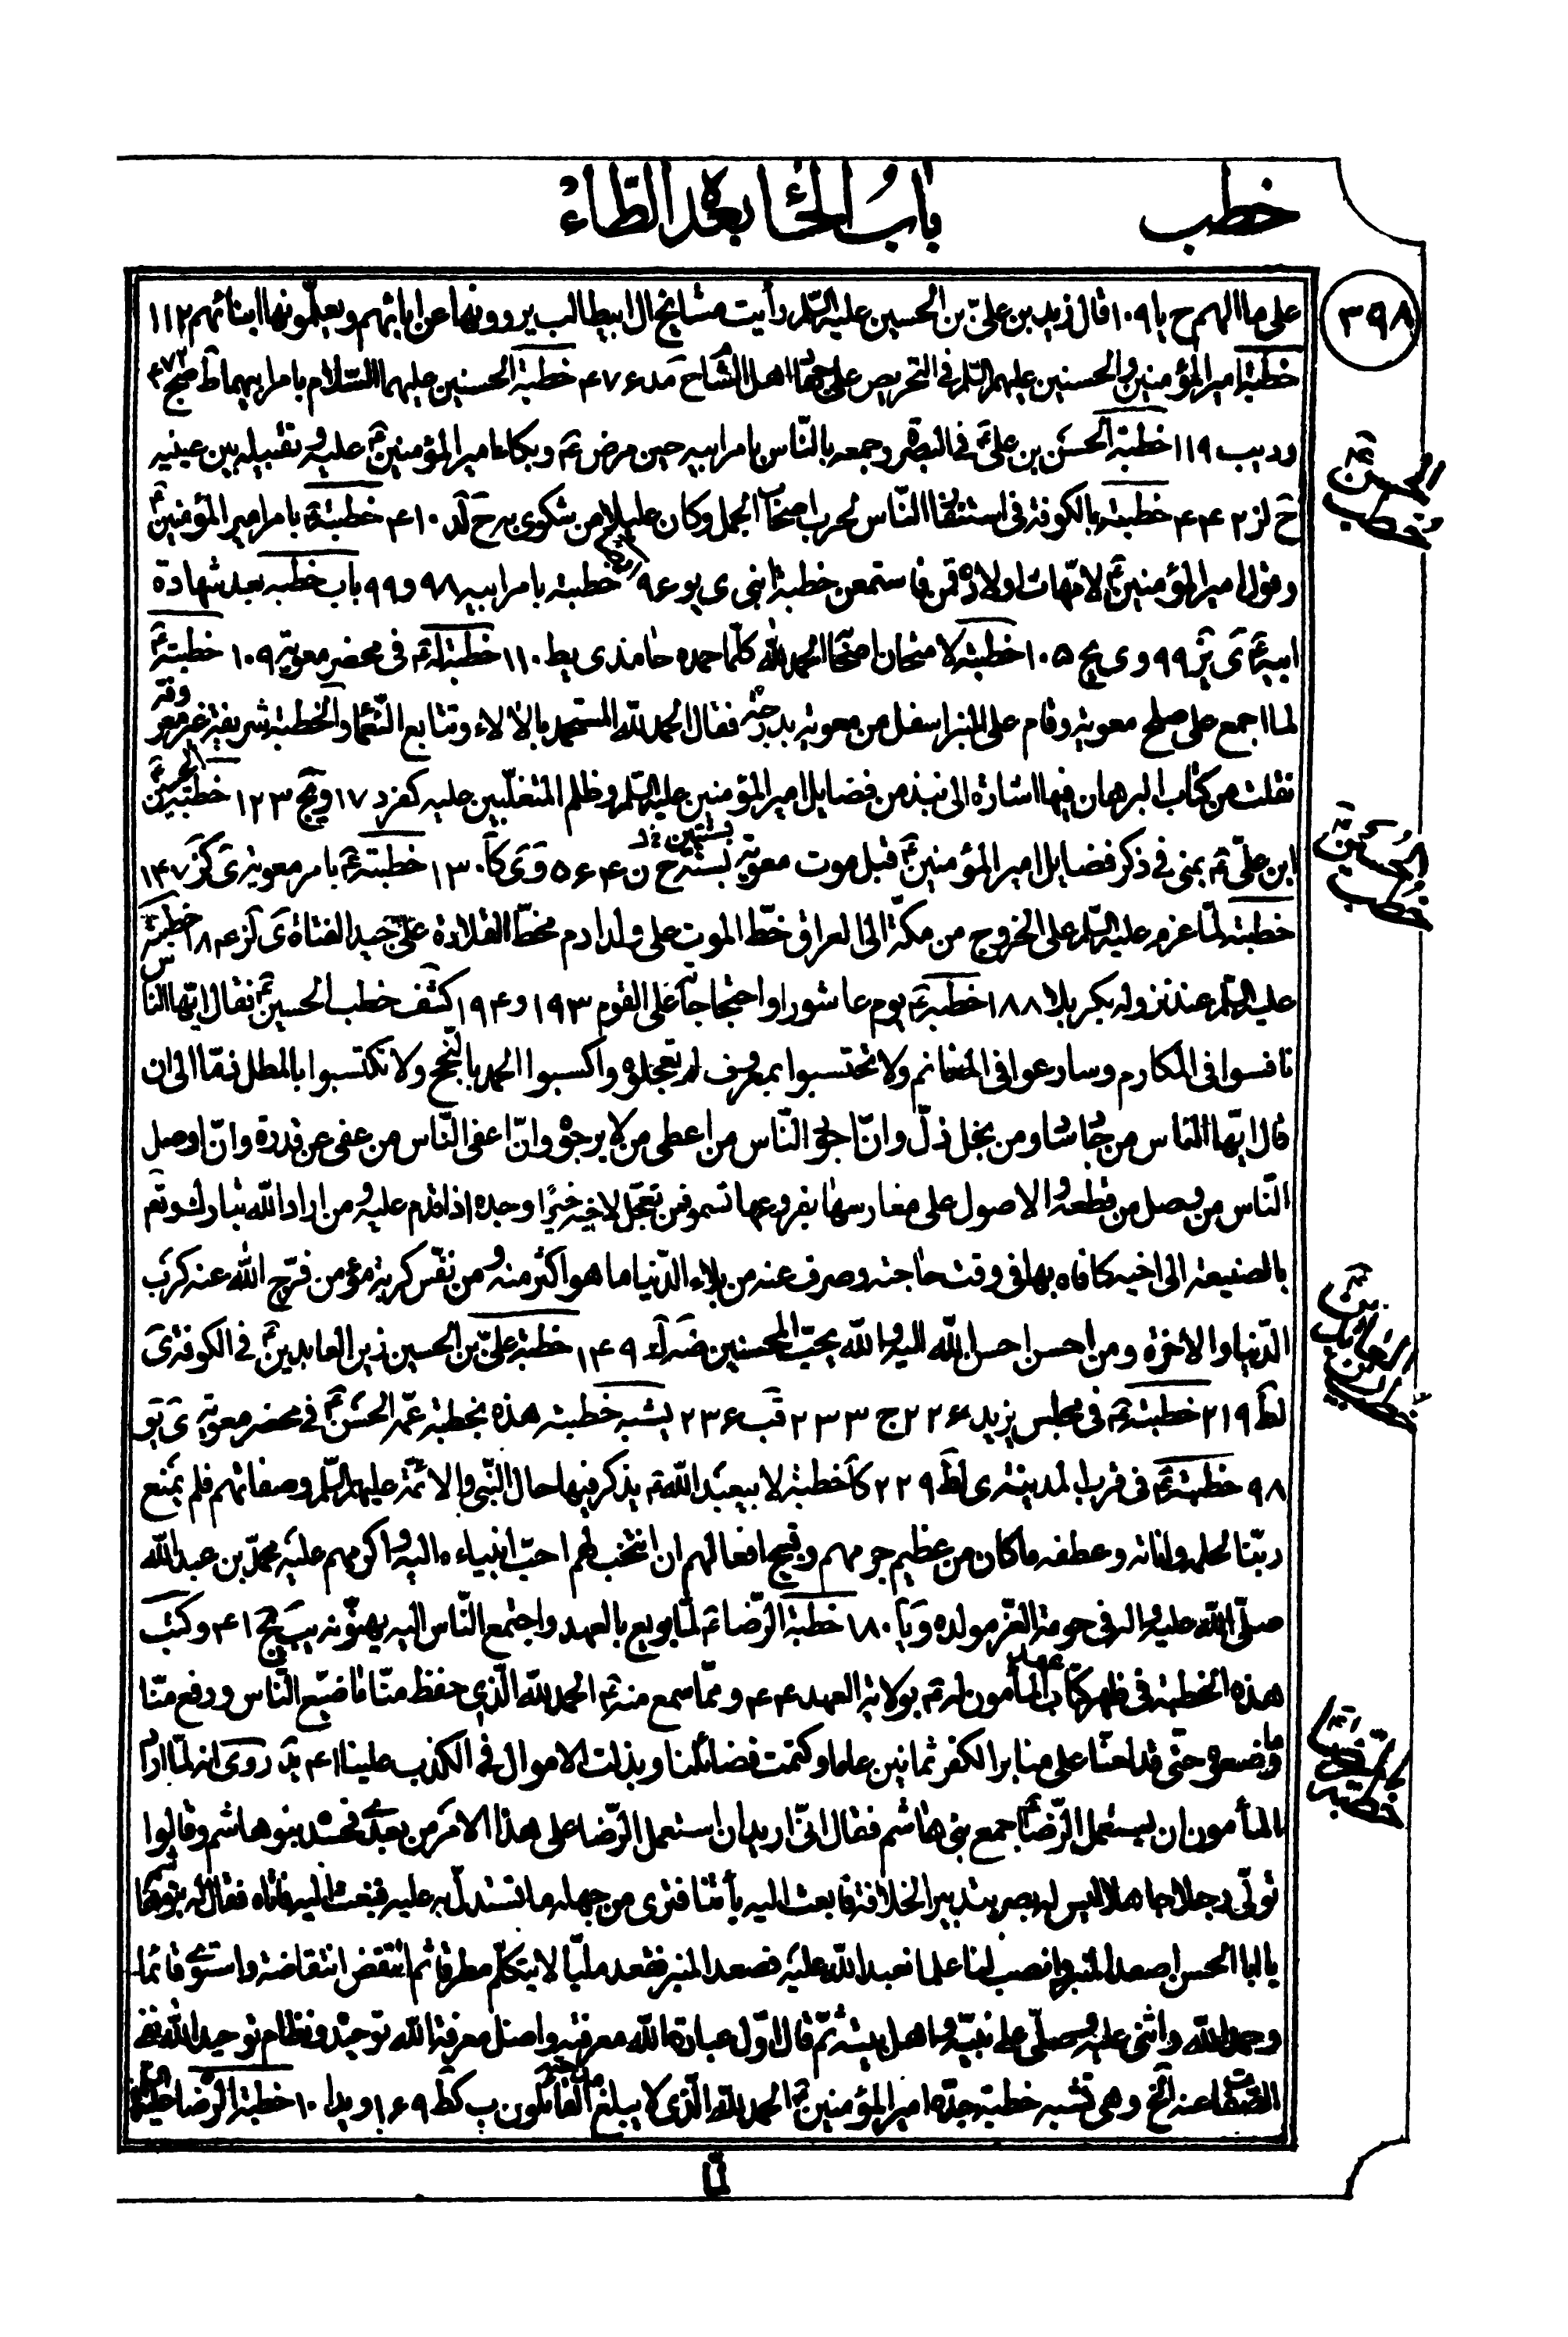 خطب
باب الخاء بعده الطاء
٣٩٨
على ما الهم ح يا ١٠٩ قال زيد بن علىّ بن الحسين عليه السّلم رأيت مشايخ ال ابيطالب يروونها عن ابائهم ويعلّمونها ابنائهم ١١٢
خطبة امير المؤمنين والحسنين عليهم السّلم فى التحريص على جهاد اهل الشام ح مد ٤٧٦ خطبة الحسنين عليهما السّلام بامر ابيهما ط صج ٤٧٢
و د يب ١١٩ خطبة الحسن بن علىّ ع فى البصرة وجمعه بالنّاس بامر ابيه حين مرض ع وبكاء امير المؤمنين ع عليه وتقبيله بين عينيه
ح لز ٤٤٢ خطبته بالكوفة فى استنفار النّاس لحرب اصحاب الجمل وكان عليلا من شكوى به ح لد ٤١٠ خطبته ع بامر امير المؤمنين ع
وقول امير المؤمنين ع لامّهات اولاده قمن فاستمعن خطبة ابنى ى يو ٩٦ خطبته بامر ابيه ٩٨ و ٩٩ باب خطبه بعد شهادة
ابيه ع ى يز ٩٩ و ى يح ١٠٥ خطبته لامتحان اصحابه الحمد لله كلّما حمده حامد ى يط ١١٠ خطبة له ع فى محضر معوية ١٠٩ خطبته ع
لما اجمع على صلح معوية وقام على المنبر اسفل من معوية بدرجة فقال الحمد لله المستحمد بالالاء وتتابع النّعماء والخطبة شريفة غير معروفة
نقلت من كتاب البرهان فيها اشارة الى نبذ من فضايل امير المؤمنين عليه السّلم وظلم المتغلّبين عليه كفر د ١٧ و يج ١٢٣ خطبة الحسين
ابن علىّ ع بمنى فى ذكر فضايل امير المؤمنين ع قبل موت معوية بسنة بسنتين خ ل ح ن ٥٦٤ و ى كا ١٣٠ خطبته ع بامر معوية ى كز ١٤٧
خطبته لمّا عزم عليه السّلم على الخروج من مكّة الى العراق خطّ الموت على ولد ادم مخطّ القلادة على جيد الفتاة ى لز ١٨٤ خطبته
عليه السّلم عند نزوله بكربلا ١٨٨ خطبته ع يوم عاشورا واحتجاجاته على القوم ١٩٣ و ١٩٤ كشف خطب الحسين ع فقال ايّها النّاس
نافسوا فى المكارم وسارعوا فى المغانم ولا تحتسبوا بمعروف لم تعجلوه واكسبوا الحمد بالنّجح ولا تكتسبوا بالمطل ذمّا الى ان
قال ايّها النّاس من جاد ساد ومن بخل ذلّ وانّ اجود النّاس من اعطى من لا يرجوه وانّ اعفى النّاس من عفى عن قدرة وانّ اوصل
النّاس من وصل من قطعه والاصول على مغارسها بفروعها تسمو فمن تعجّل لاخيه خيرًا وجده اذا قدم عليه ومن اراد الله تبارك وتع
بالصنيعة الى اخيه كافاه بها فى وقت حاجته وصرف عنه من بلاء الدّنيا ما هو اكثر منه ومن نفّس كربة مؤمن فرّج الله عنه كرب
الدّنيا والاخرة ومن احسن احسن الله اليه والله يحبّ المحسنين ضه لا ١٤٩ خطبة علىّ بن الحسين زين العابدين ع فى الكوفة ى
لط ٢١٩ خطبته ع فى مجلس يزيد ٢٢٦ ج ٢٣٣ قب ٢٣٦ يشبه خطبته هذه بخطبة عمّه الحسن ع فى محضر معوية ى يو
٩٨ خطبته ع فى قرب المدينة ى لط ٢٢٩ كا خطبة لابيعبد الله ع يذكر فيها حال النّبى والائمّة عليهم السّلم وصفاتهم فلم يمنع
ربّنا لحلمه واناته وعطفه ما كان من عظيم جرمهم وقبيح افعالهم ان انتخب لهم احبّ انبياءه اليه واكرمهم عليه محمّد بن عبد الله
صلّى الله عليه واله فى حومة العزّ مولده و يا ١٨٠ خطبة الرّضا ع لمّا بويع بالعهد واجتمع النّاس اليه يهنّونه يب يج ٤١ وكتب
هذه الخطبة فى ظهر كتاب عهد المأمون له ع بولاية العهد ٤٤ وممّا سمع منه ع الحمد لله الّذى حفظ منّا ما ضيّع النّاس ورفع منّا
ما وضعوه حتّى قد لعنّا على منابر الكفر ثمانين عاما وكتمت فضائلنا وبذلت الاموال فى الكذب علينا ٤١ يد روى انه لمّا اراد
المأمون ان يستعمل الرّضا ع جمع بنى هاشم فقال انّى اريد ان استعمل الرّضا على هذا الامر من بعدى فحسده بنو هاشم وقالوا
تولّى رجلا جاهلا ليس له بصر بتدبير الخلافة فابعث اليه يأتنا فترى من جهله ما تستدلّ به عليه فبعث اليه فاتاه فقال له بنو هاشم
يا ابا الحسن اصعد المنبر وانصب لنا علما نعبد الله عليه فصعد المنبر فقعد مليّا لا يتكلّم مطرقا ثم انتفض انتفاضة واستوى قائما
وحمد الله واثنى عليه وصلّى على نبيّه واهل بيته ثمّ قال اوّل عبادة الله معرفته واصل معرفة الله توحيده ونظام توحيد الله نفى
الصّفات عنه الخ وهى تشبه خطبة جدّه امير المؤمنين ع الحمد لله الّذى لا يبلغ مدحته القائلون ب كط ١٦٩ و يد ا ١٠ خطبة الرّضا عليه السّلم
الحسن ع خطب
الحسين ع خطب
زين العابدين ع
الرّضا ع خطبة
لمّا